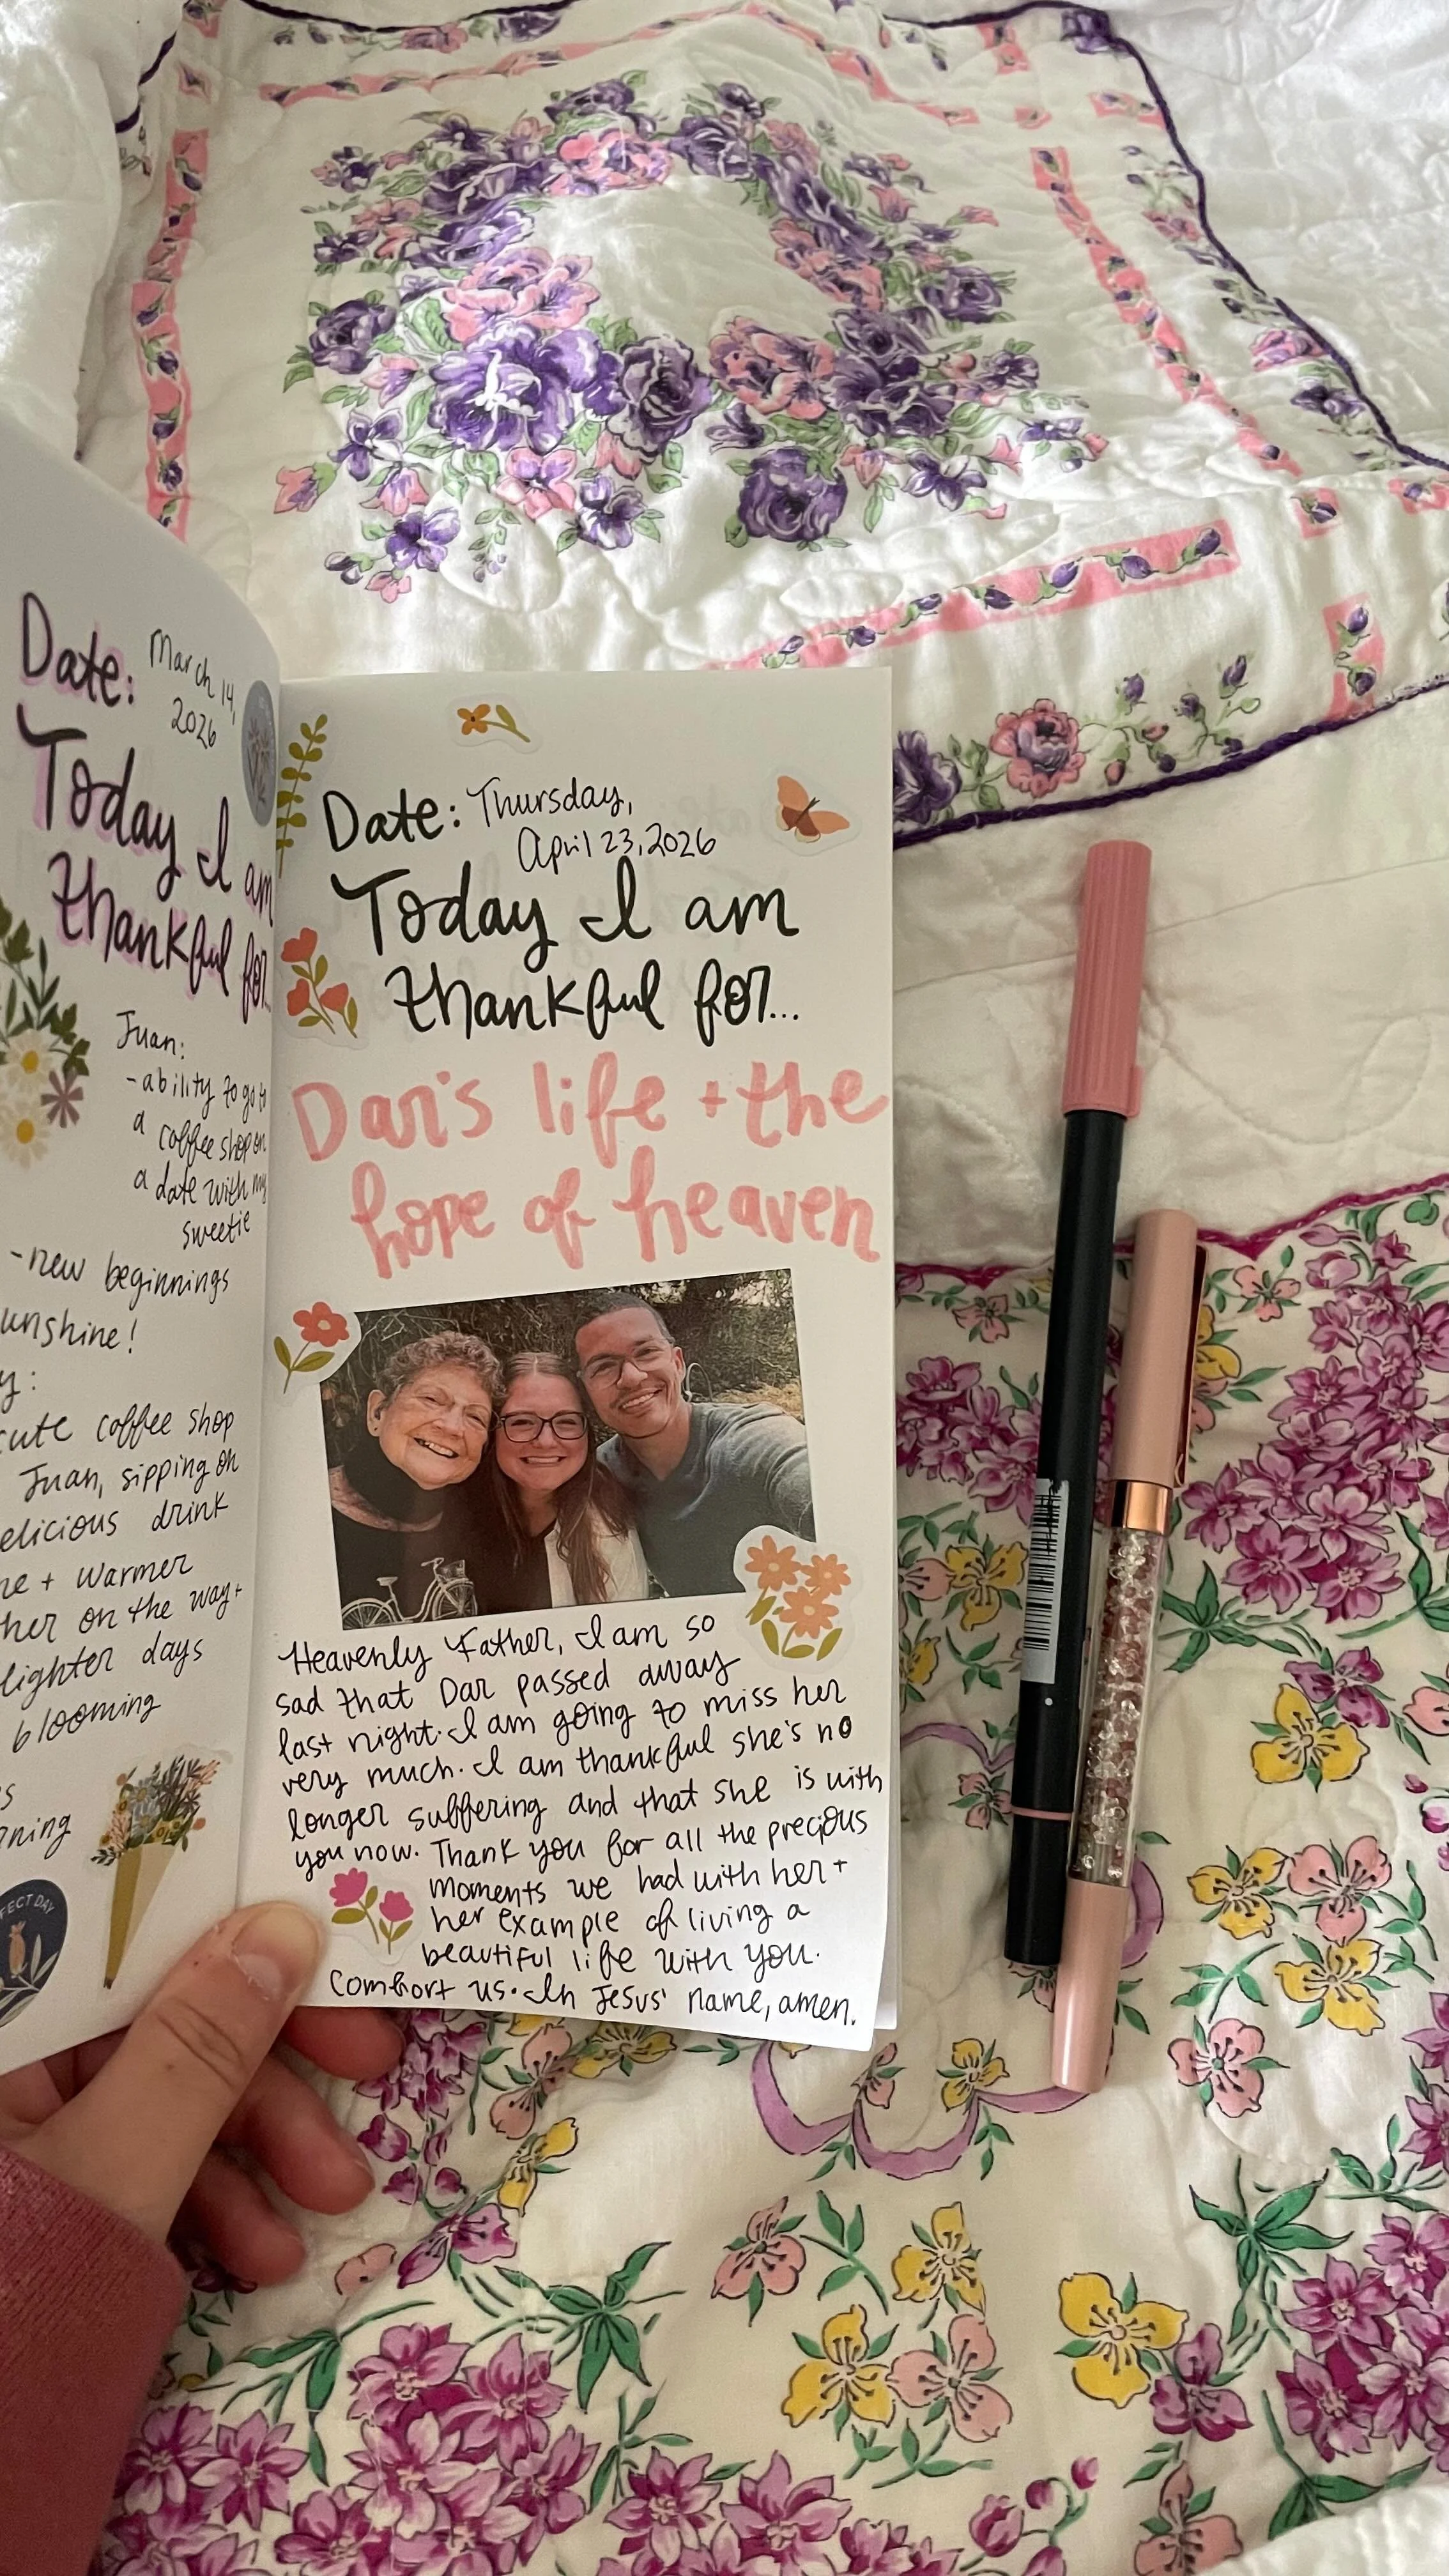 Date: March 14,
2026
Today I am
thankful for...
Juan:
-ability to go to
a coffee shop on
a date with my
sweetie
-new beginnings
unshine!
y:
cute coffee shop
Juan, sipping on
elicious drink
ne + warmer
her on the way+
lighter days
blooming
s
ning
FECT DAY
Date: Thursday,
April 23, 2026
Today I am
thankful for...
Dar's life + the
hope of heaven
Heavenly Father, I am so
sad that Dar passed away
last night. I am going to miss her
very much. I am thankful she's no
longer suffering and that she is with
you now. Thank you for all the precious
moments we had with her +
her example of living a
beautiful life with you.
Comfort us. In Jesus' name, amen.